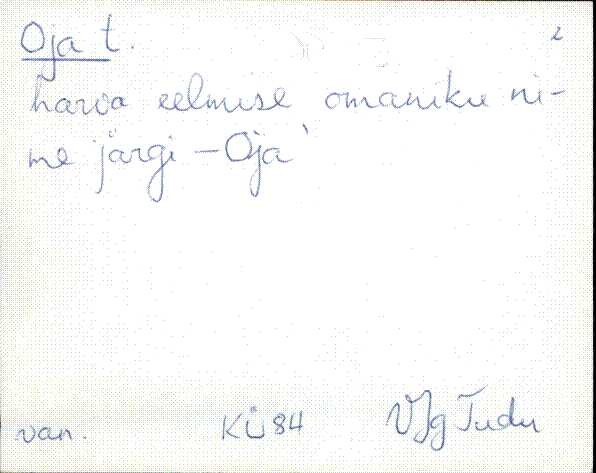 Oja t. 2
harva eelmise omaniku ni-
me järgi — Oja`
van. KÜ 84 VJg Tudu